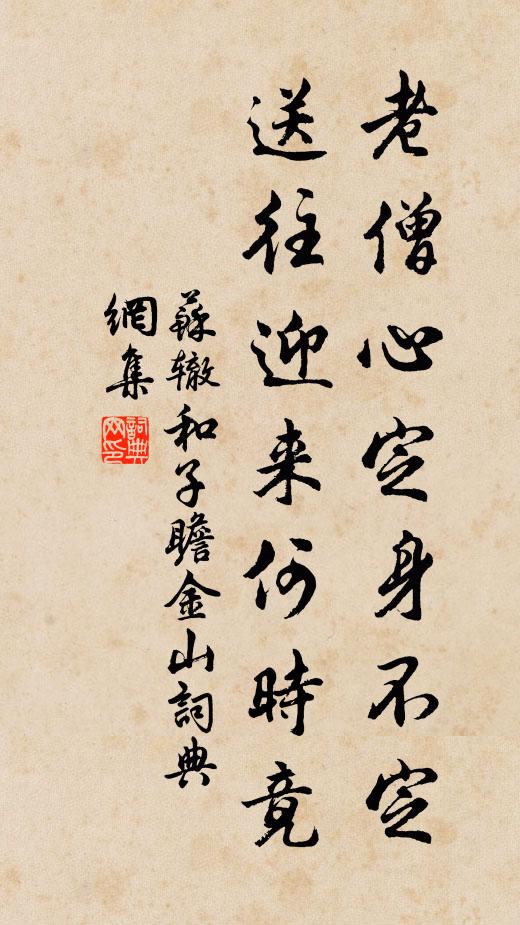 老僧心定身不定
送往迎来何時竟
蘇辙和子瞻金山詞典
網集
詞典網印